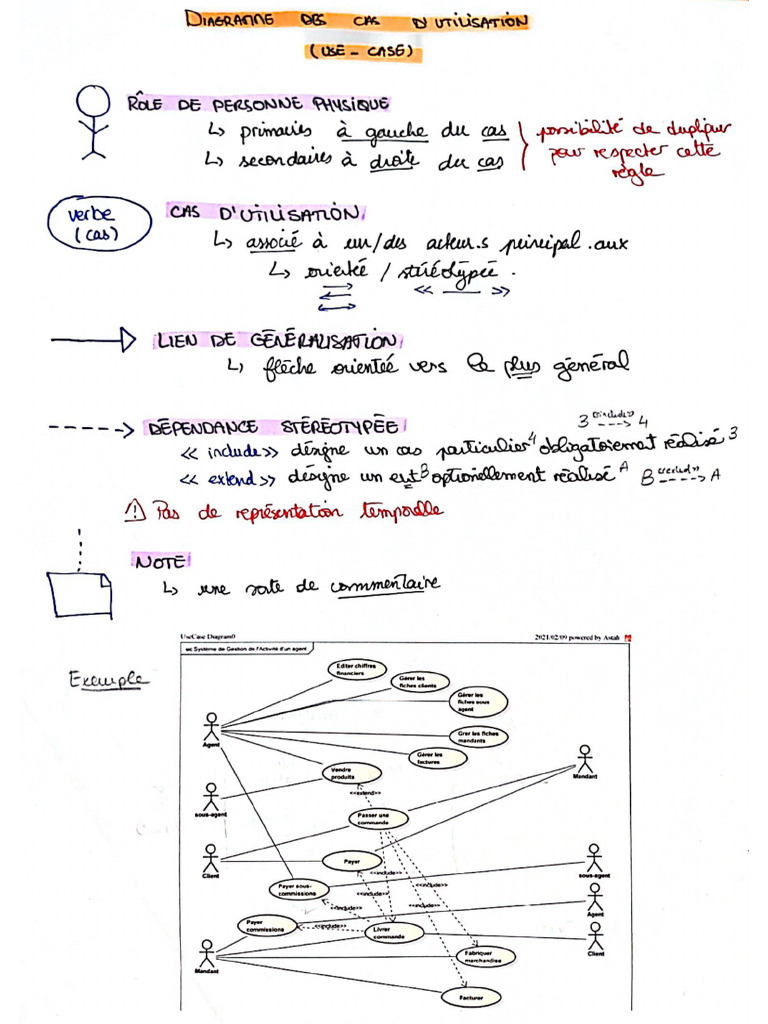 DIAGRAMME DES CAS D'UTILISATION
(USE - CASE)
RÔLE DE PERSONNE PHYSIQUE
↳ primaries à gauche du cas
↳ secondaires à droite du cas
possibilité de dupliquer
pour respecter cette
règle
verbe
(cas)
CAS D'UTILISATION
↳ associé à un/des acteur.s principal.aux
↳ orienté / stéréotypée.
<< >>
LIEN DE GÉNÉRALISATION
↳ flèche orientée vers le plus général
DÉPENDANCE STÉRÉOTYPÉE
3 <<include>> 4
<< include >> désigne un cas particulier 4 obligatoirement réalisé 3
<< extend >> désigne un B optionellement réalisé A
B A
⚠ Pas de représentation temporelle
NOTE
↳ une sorte de commentaire
Exemple
UseCase Diagram0 2021/02/09 powered by Astah
uc Système de Gestion de l'Activité d'un agent
Editer chiffres
financiers
Gérer les
fiches clients
Gérer les
fiches sous
agent
Agent
Grer les fiches
mandants
Gérer les
factures
Vendre
produits
Mandant
<<extend>>
sous-agent
Passer une
commande
Client
Payer
<<include>>
sous-agent
Payer sous-
commissions
<<include>>
<<include>>
<<include>>
Agent
Payer
commissions
<<include>>
Livrer
commande
Client
Mandant
Fabriquer
marchandise
Facturer